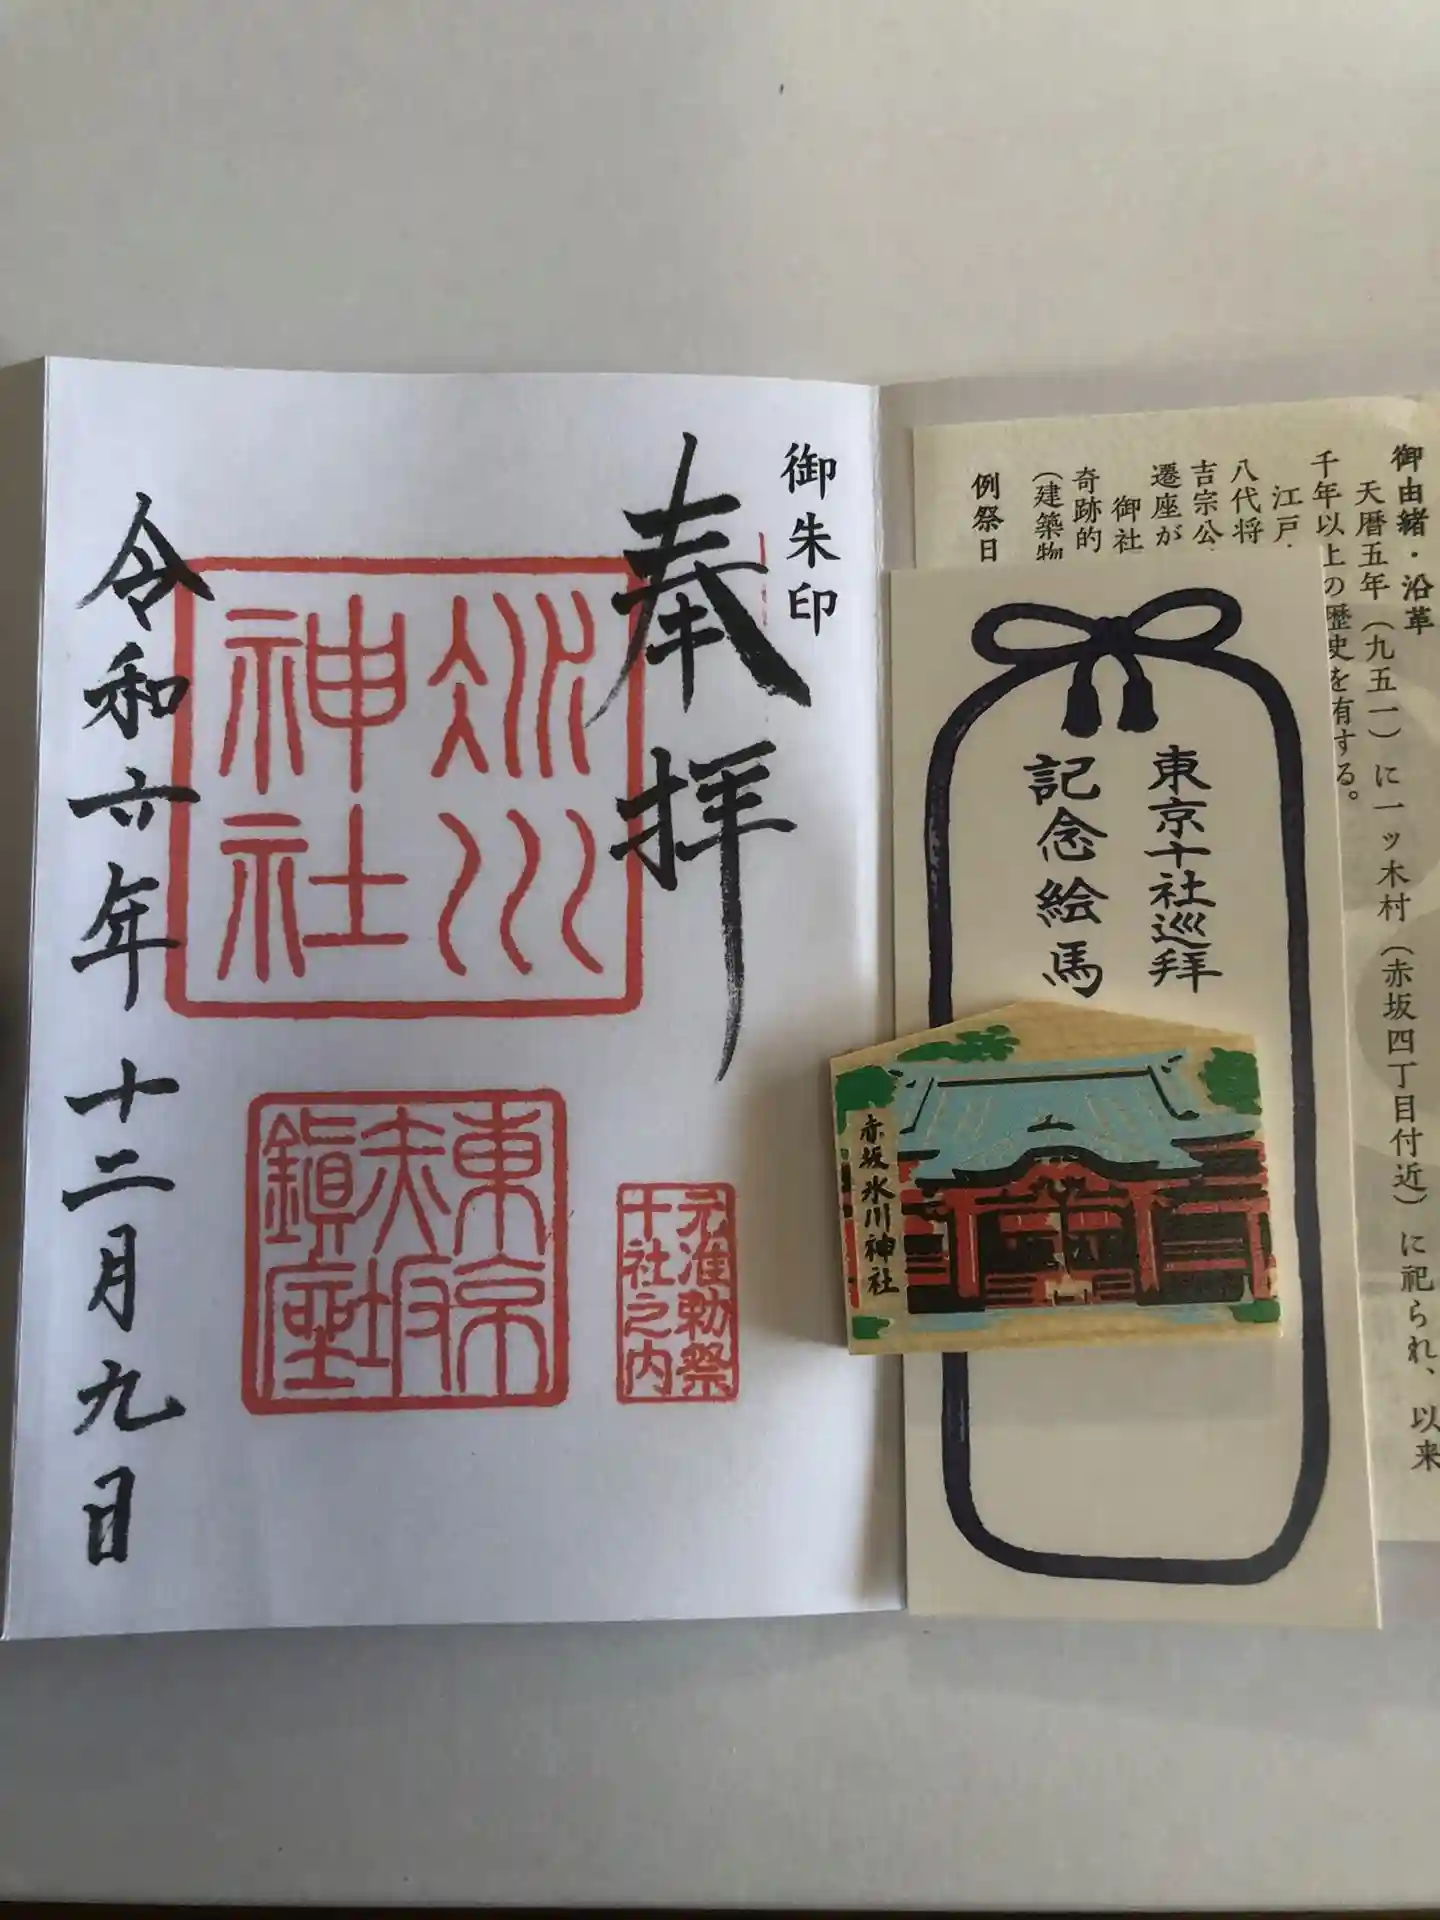 御朱印
奉拝
氷川
神社
東京
赤坂
鎮座
元准勅祭
十社之内
令和六年 十二月九日
御由緒・沿革
天暦五年（九五一）に一ッ木村（赤坂四丁目付近）に祀られ、以来
千年以上の歴史を有する。
江戸
八代将
吉宗公
遷座が
御社
奇跡的
（建築物
例祭日
東京十社巡拜
記念絵馬
赤坂氷川神社